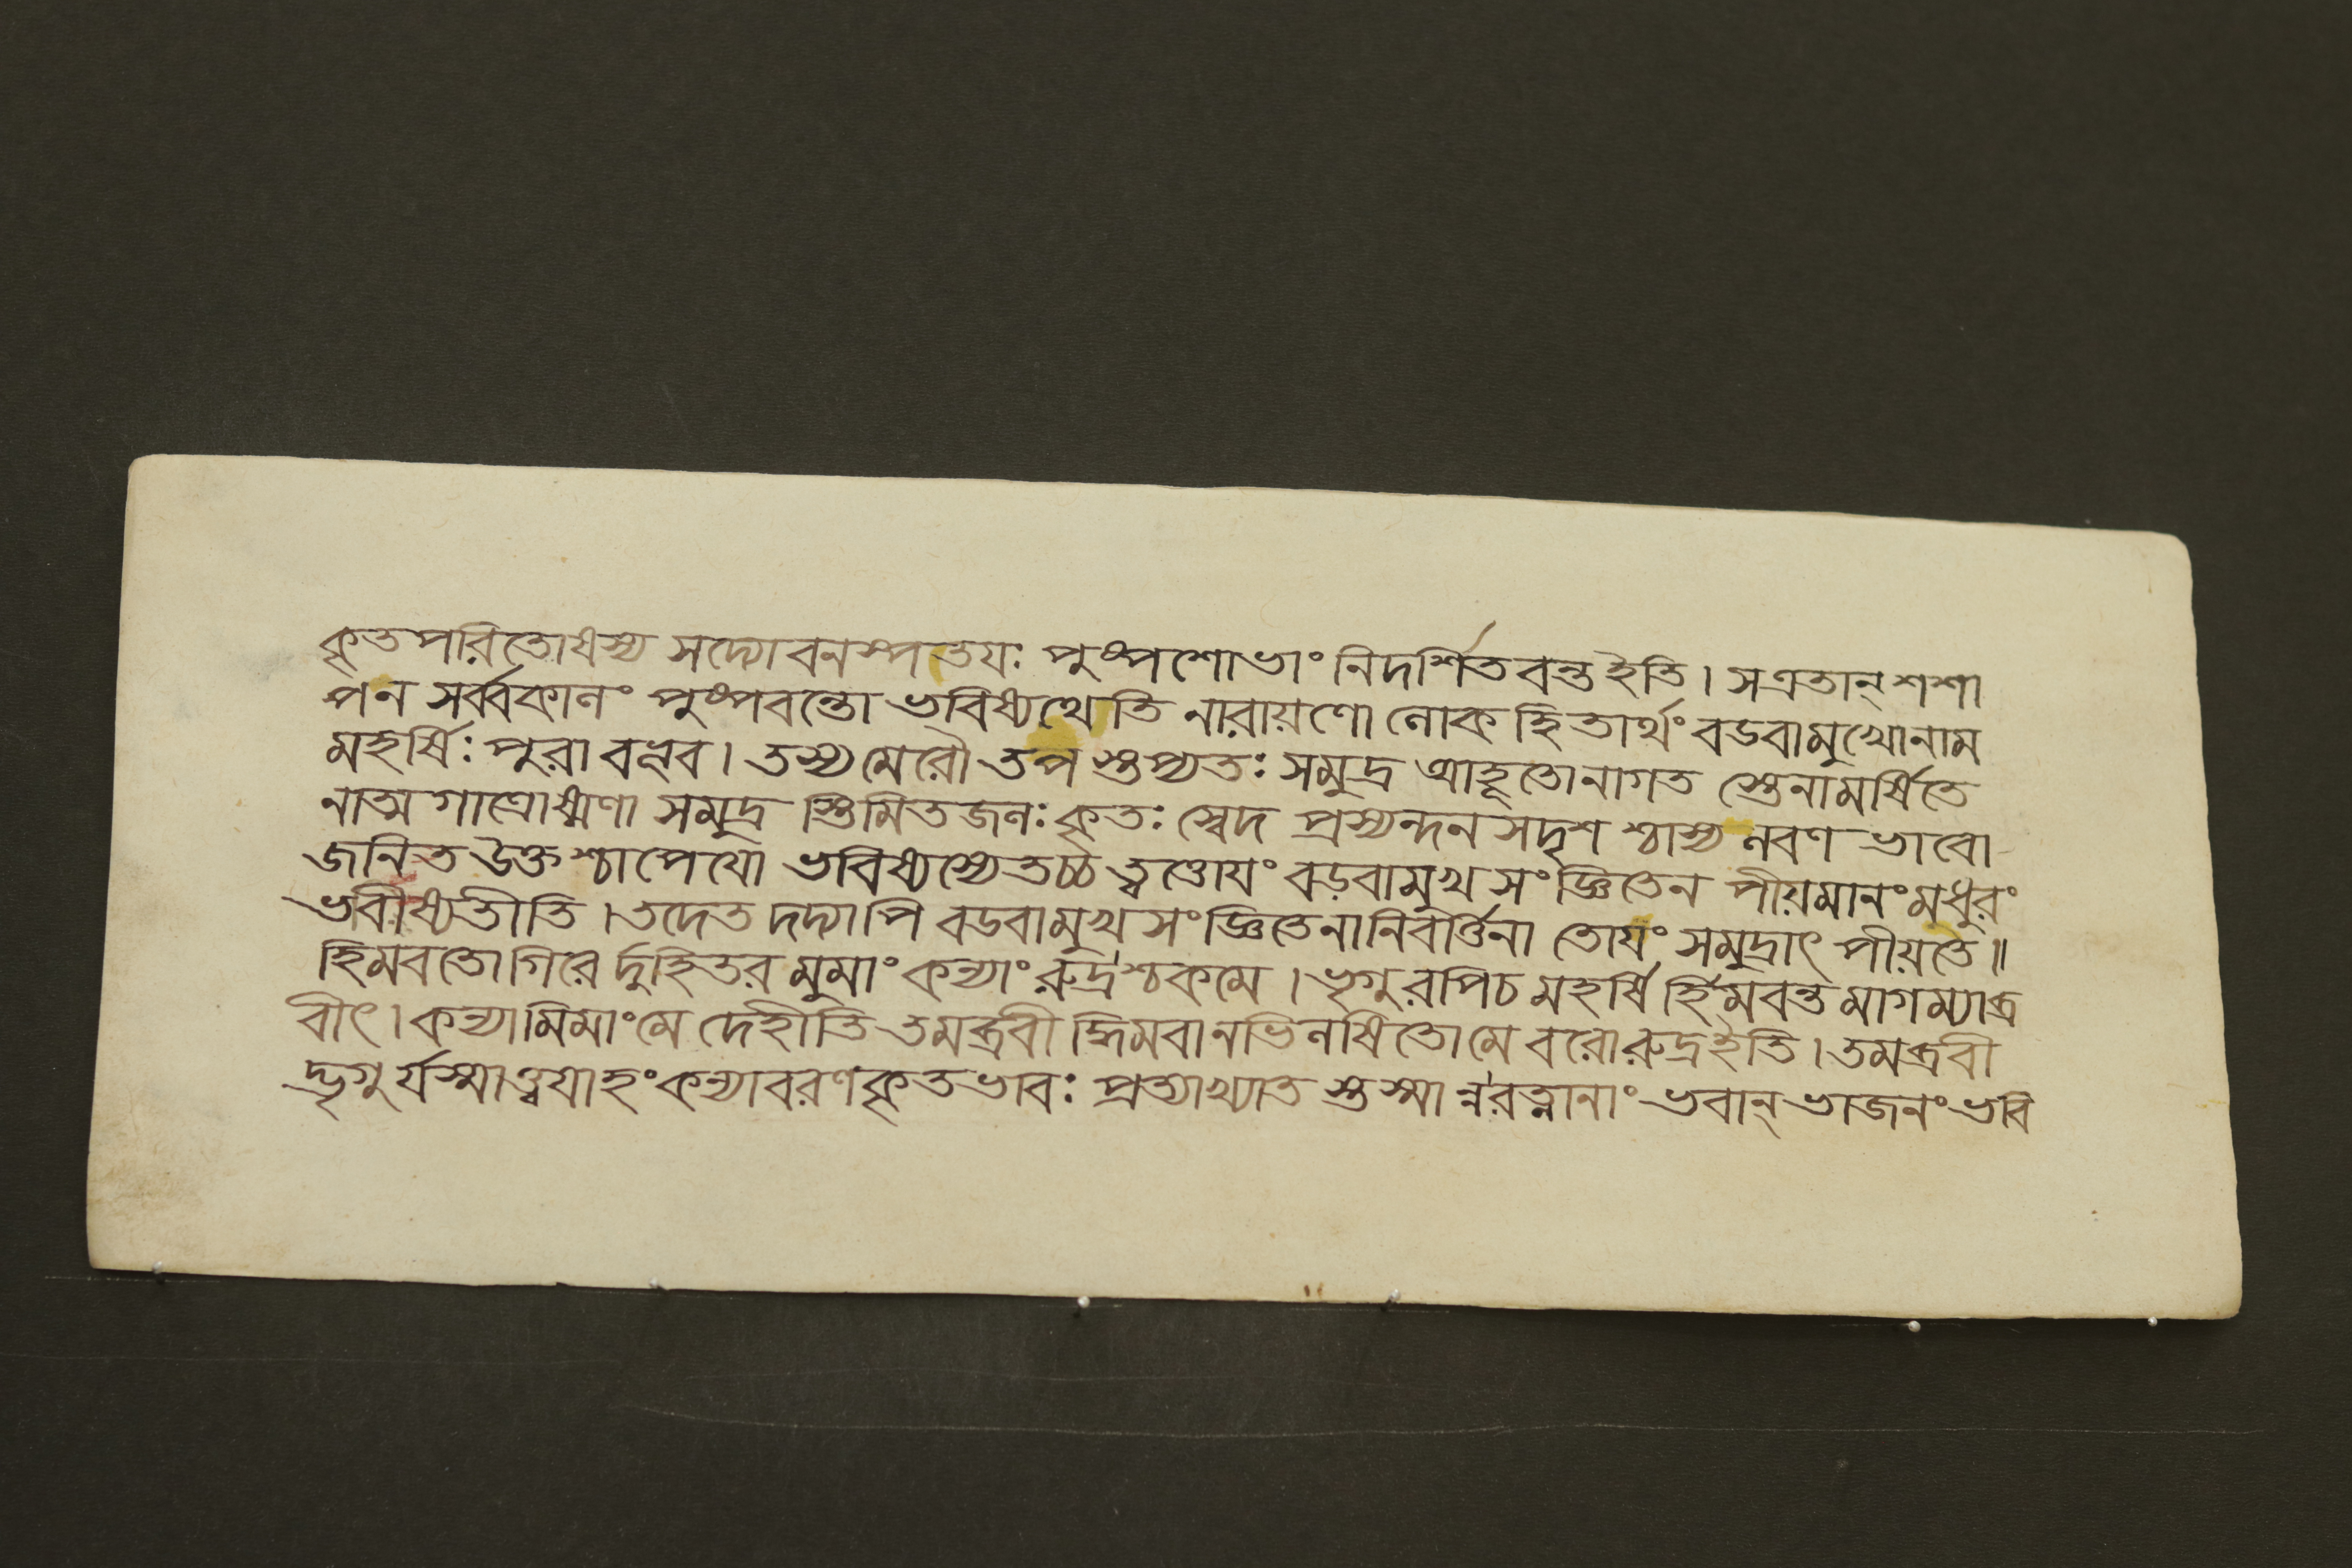 কৃতপরিতোষস্য সদ্যোবনস্পতযঃ পুষ্পশোভাং নিদর্শিতবন্ত ইতি। সএতান্ শশা
পন সর্ব্বকানং পুষ্পবন্তো ভবিষ্যথেতি নারায়ণো লোকহিতার্থং বডবামুখোনাম
মহর্ষিঃ পুরা বভূব। তস্য মেরৌ তপস্তপ্যতঃ সমুদ্র আহূতোনাগত স্তেনামর্ষিতে
নাত্ম গাত্রোষ্মণা সমুদ্র স্তিমিতজলঃ কৃতঃ স্বেদ প্রস্যন্দন সদৃশ শ্চাস্য লবণ ভাবো
জনিত উক্তশ্চাপেযো ভবিষ্যস্যেতচ্চ ত্বত্তোযং বড়বামুখসংজ্ঞিতেন পীয়মানং মধুরং
ভবীষ্যতীতি। তদেত দদ্যাপি বডবামুখ সংজ্ঞিতেনানিবর্ত্তিনা তোযং সমুদ্রাৎ পীয়তে॥
হিমবতো গিরে র্দুহিতর মুমাং কন্যাং রুদ্রশ্চকমে। ভৃগুরপিচ মহর্ষি র্হিমবন্ত মাগম্যাব্র
বীৎ। কন্যামিমাং মে দেহীতি তমব্রবী দ্ধিমবানভিলষিতোমে বরোরুদ্রইতি। তমব্রবী
দ্ভৃগু র্যস্মাত্ত্বযাহং কন্যাবরণকৃতভাবঃ প্রত্যাখ্যাত স্তস্মা ন্নরত্নানাং ভবান্ ভাজনং ভবি